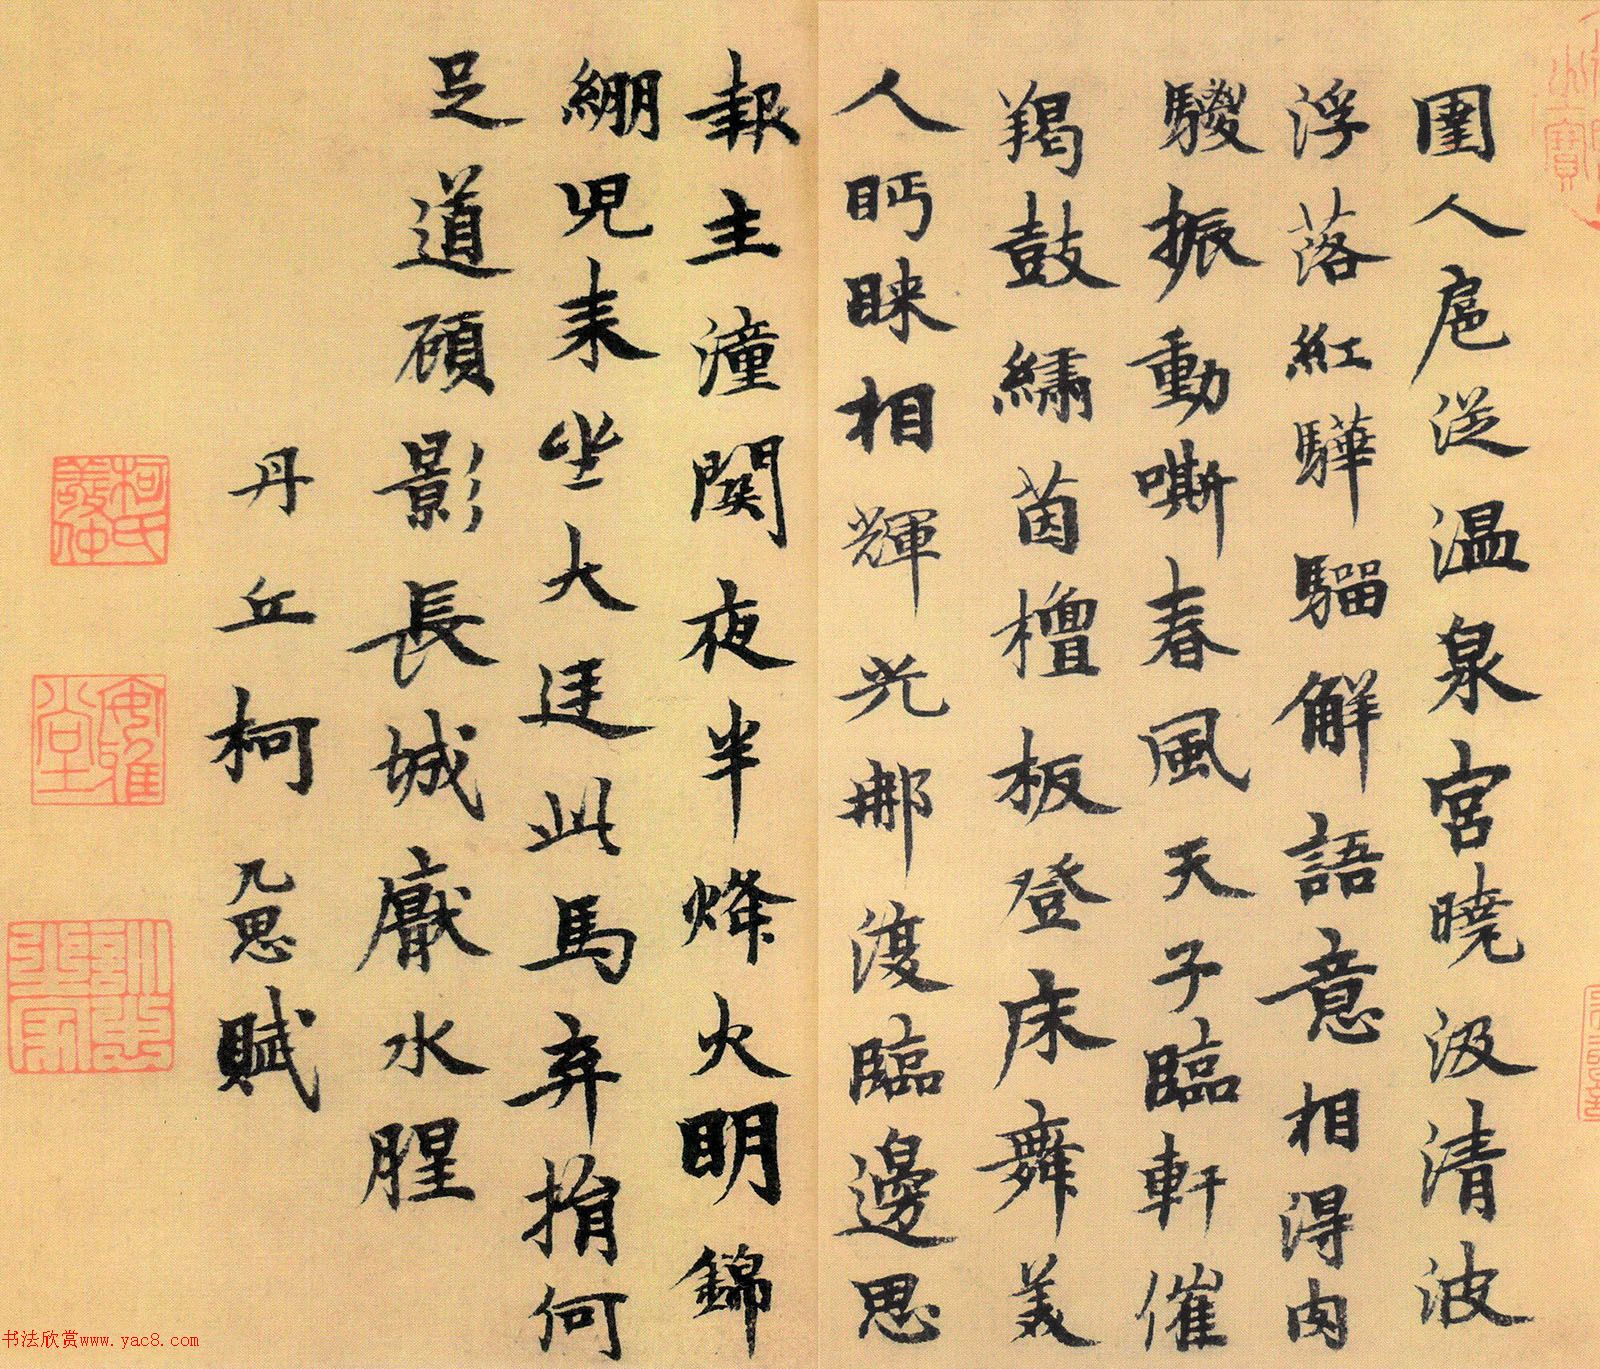 圉人扈從温泉宮曉汲清波
浮落紅驊騮解語意相得肉
騣振動嘶春風天子臨軒催
羯鼓繡茵檀板登床舞美
人眄睞相輝光那復臨邊思
報主潼關夜半烽火明錦
繃兒来坐大廷此馬弃捐何
足道碩影長城厭水腥
丹丘柯九思賦
柯氏敬仲
书法欣赏www.yac8.com